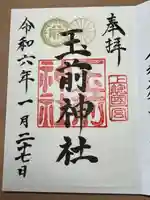 奉拝
上総国一之宮
玉前神社
令和六年一月二十七日